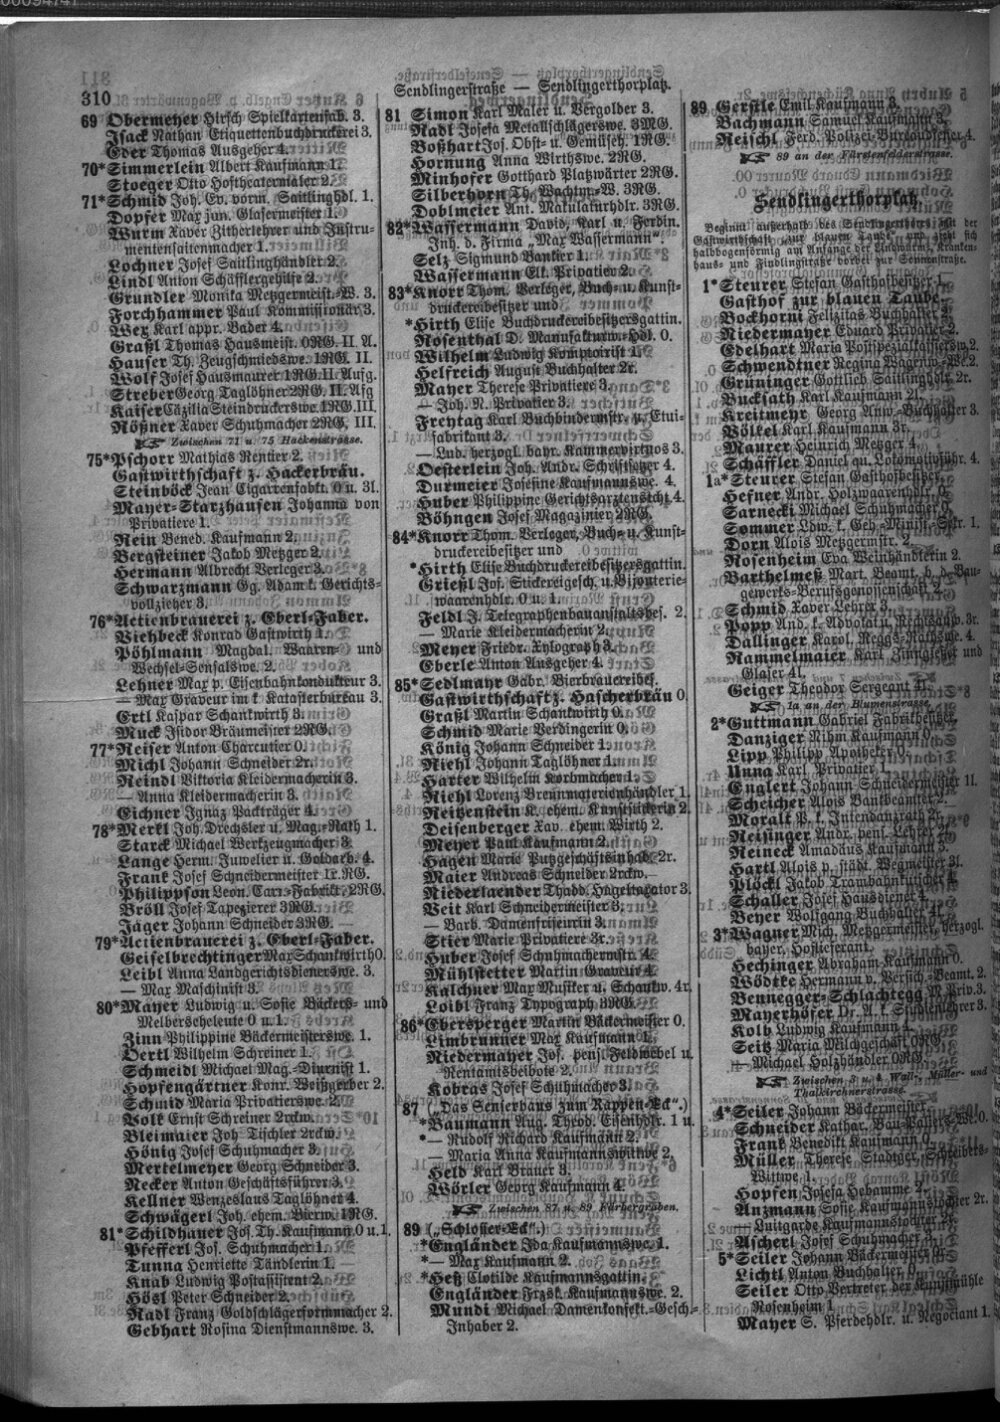 310
Sendlingerstraße — Sendlingerthorplatz.
69 Obermeyer Hirsch Spielkartenfab. 3.
Isack Nathan Etiquettenbuchdruckerei 3.
Eder Thomas Ausgeher 4.
70*Simmerlein Albert Kaufmann 1.
Stoeger Otto Hoftheatermaler 2.
71*Schmid Joh. Ev. vorm. Saitlinghdl. 1.
Dopfer Max jun. Glasermeister 1.
Wurm Xaver Zitherlehrer und Instru-
mentensaitenmacher 1.
Lochner Josef Saitlinghändler 2.
Lindl Anton Schäfflergehilfe 2.
Grundler Monika Metzgermeist.-W. 3.
Forchhammer Paul Kommissionär 3.
Wex Karl appr. Bader 4.
Graßl Thomas Hausmeist. 0RG. II. A.
Hauser Th. Zeugschmiedswe. 1RG. II.
Wolf Josef Hausmaurer 1RG. II. Aufg.
Streber Georg Taglöhner 2RG. II. Afg
Kaiser Cäzilia Steindruckerswe. 1RG. III.
Rößner Xaver Schuhmacher 2RG. III.
Zwischen 71 u. 75 Hackenstrasse.
75*Pschorr Mathias Rentier 2.
Gastwirthschaft z. Hackerbräu.
Steinböck Jean Cigarrenfabkt. 0 u. 3l.
Mayer-Starzhausen Johanna von
Privatiere 1.
Rein Bened. Kaufmann 2.
Bergsteiner Jakob Metzger 2.
Hermann Albrecht Verleger 3.
Schwarzmann Gg. Adam k. Gerichts-
vollzieher 3.
76*Actienbrauerei z. Eberl-Faber.
Viehbeck Konrad Gastwirth 1.
Pöhlmann Magdal. Waaren- und
Wechsel-Sensalswe. 2.
Lehner Max p. Eisenbahnkondukteur 3.
— Max Graveur im k. Katasterbureau 3.
Ertl Kaspar Schankwirth 3.
Muck Isidor Bräumeister 2RG.
77*Reiser Anton Charcutier 0.
Michl Johann Schneider 2r.
Reindl Viktoria Kleidermacherin 3.
— Anna Kleidermacherin 3.
Eichner Ignaz Packträger 4.
78*Merkl Joh. Drechsler u. Mag.-Rath 1.
Starck Michael Werkzeugmacher 3.
Lange Herm. Juwelier u. Goldarb. 4.
Frank Josef Schneidermeister 1r.RG.
Philippson Leon. Carr.-Fabrikt. 2RG.
Bröll Josef Tapezierer 3RG.
Jäger Johann Schneider 3RG.
79*Actienbrauerei z. Eberl-Faber.
Geiselbrechtinger Max Schankwirth 0.
Leibl Anna Landgerichtsdienerswe. 3.
— Max Maschinist 3.
80*Mayer Ludwig u. Sofie Bäckers- und
Melberseheleute 0 u. 1.
Zinn Philippine Bäckermeisterswe. 1.
Oertl Wilhelm Schreiner 1.
Schmeidl Michael Mag.-Diurnist 1.
Hopfengärtner Konr. Weißgerber 2.
Schmid Maria Privatierswe. 2.
Volk Ernst Schreiner 2rckw.
Bleimaier Joh. Tischler 2rckw.
Hönig Josef Schuhmacher 3.
Mertelmeyer Georg Schneider 3.
Necker Anton Geschäftsführer 3.
Kellner Wenzeslaus Taglöhner 4.
Schwägerl Joh. ehem. Bierw. 1RG.
81*Schildhauer Jos. Th. Kaufmann 0 u. 1.
Pfefferl Jos. Schuhmacher 1.
Tunna Henriette Tändlerin 1.
Knab Ludwig Postassistent 2.
Hösl Peter Schneider 2.
Radl Franz Goldschlägerformmacher 2.
Gebhart Rosina Dienstmannswe. 3.
81 Simon Karl Maler u. Vergolder 3.
Radl Josefa Metallschlägerswe. 3MG.
Boßhart Jos. Obst- u. Gemüseh. 1RG.
Hornung Anna Wirthswe. 2RG.
Minhofer Gotthard Platzwärter 2RG.
Silberhorn Th. Wachtm.-W. 3RG.
Doblmeier Ant. Makulaturhdlr. 3RG.
82*Wassermann David, Karl u. Ferdin.
Inh. d. Firma „Max Wassermann“.
Selz Sigmund Bankier 1.
Wassermann Elk. Privatiev 2.
83*Knorr Thom. Verleger, Buch- u. Kunst-
druckereibesitzer und
*Hirth Elise Buchdruckereibesitzersgattin.
Rosenthal D. Manufakturw.-Hdl. 0.
Wilhelm Ludwig Komptoirist 1.
Helfreich August Buchhalter 2r.
Mayer Therese Privatiere 3.
— Joh. N. Privatier 3.
Freytag Karl Buchbindermstr. u. Etui-
fabrikant 3.
— Lud. herzogl. bayr. Kammervirtuos 3.
Oesterlein Joh. Andr. Schriftsetzer 4.
Durmeier Josefine Kaufmannswe. 4.
Huber Philippine Gerichtsarztenstcht. 4.
Böhngen Josef Magazinier 2RG.
84*Knorr Thom. Verleger, Buch- u. Kunst-
druckereibesitzer und
*Hirth Elise Buchdruckereibesitzersgattin.
Grießl Jos. Stickereigesch. u. Bijouterie-
waarenhdlr. 0 u. 1.
Feldl J. Telegraphenbauanstaltsbes. 2.
— Marie Kleidermacherin 2.
Meyer Friedr. Xylograph 3.
Eberle Anton Ausgeher 4.
85*Sedlmayr Gabr. Bierbrauereibes.
Gastwirthschaft z. Hascherbräu 0
Graßl Martin Schankwirth 0.
Schmid Marie Verdingerin 0.
König Johann Schneider 1.
Riehl Johann Taglöhner 1.
Harter Wilhelm Korbmacher 1.
Riehl Lorenz Brennmaterienhändler 1.
Reitzenstein K. ehem. Kunststickerin 2.
Deisenberger Xav. ehem. Wirth 2.
Meyer Paul Kaufmann 2.
Hagen Marie Putzgeschäftsinhab. 2r.
Maier Andreas Schneider 2rckw.
Niederlaender Thadd. Hageltaxator 3.
Veit Karl Schneidermeister 3.
— Barb. Damenfriseurin 3.
Stier Marie Privatiere 3r.
Huber Josef Schuhmachermstr. 4.
Mühlstetter Martin Graveur 4.
Kalchner Max Musiker u. Schankw. 4r.
Loibl Franz Typograph 3RG.
86*Ebersperger Martin Bäckermeister 0.
Limbrunner Max Kaufmann 1.
Niedermayer Jos. pens. Feldwebel u.
Rentamtsbeibote 2.
Kobras Josef Schuhmacher 3.
87 („Das Senserhaus zum Rappen-Eck“.)
*Baumann Aug. Theod. Eisenhdlr. 1 u.
*— Rudolf Richard Kaufmann 2.
— Maria Anna Kaufmannswittwe 2.
Held Karl Brauer 3.
Wörler Georg Kaufmann 4.
Zwischen 87 u. 89 Färbergraben.
89 („Schlosser-Eck“.)
*Engländer Ida Kaufmannswe. 1.
*— Max Kaufmann 2.
*Heß Clotilde Kaufmannsgattin.
Engländer Frzsk. Kaufmannswe. 2.
Mundi Michael Damenkonfekt.-Gesch.-
Inhaber 2.
89 Gerstle Emil Kaufmann 3.
Bachmann Samuel Kaufmann 3.
Reischl Ferd. Polizei-Bureaudiener 4.
89 an der Fürstenfelderstrasse.
Sendlingerthorplatz.
Beginnt außerhalb des Sendlingerthors mit der
Gastwirthschaft „zur blauen Taube“ und zieht sich
halbbogenförmig am Anfange der Lindwurm-, Kranken-
haus- und Findlingstraße vorbei zur Sonnenstraße.
1*Steurer Stefan Gasthofbesitzer.
Gasthof zur blauen Taube.
Bockhorni Felizitas Buchhalter 2.
Niedermayer Eduard Privatier 2.
Edelhart Maria Postspezialkassiersw. 2.
Schwendtner Regina Wagnerw.-We. 2.
Grüninger Gottlieb Saitlinghdlr. 2r.
Bucksath Karl Kaufmann 2l.
Kreitmeyr Georg Anw.-Buchhalter 3.
Völkel Karl Kaufmann 3r.
Maurer Heinrich Metzger 4.
Schäffler Daniel qu. Lokomotivführ. 4.
1a*Steurer Stefan Gasthofbesitzer.
Hefner Andr. Holzwaarenhdlr. 0.
Sarnecki Michael Schuhmacher 0.
Sommer Ldw. k. Geh.-Minist.-Sekr. 1.
Dorn Alois Metzgermstr. 2.
Rosenheim Eva Weinhändlerin 2.
Barthelmeß Mart. Beamt. b. d. Bau-
gewerks-Berufsgenossenschaft 2.
Schmid Xaver Lehrer 3.
Popp And. k. Advokat u. Rechtsanw. 3r.
Dallinger Karol. Reggs.-Rathswe. 4.
Rammelmaier Karl Zinngießer und
Glaser 4l.
Geiger Theodor Sergeant 4l.
1a an der Blumenstrasse.
2*Guttmann Gabriel Fabrikbesitzer.
Danziger Nihm Kaufmann 0.
Lipp Philipp Apotheker 0.
Unna Karl Privatier 1.
Englert Johann Schneidermeister 1l.
Scheicher Alois Bankbeamter 2.
Moralt P. k. Intendanzrath 2r.
Reisinger Andr. pens. Lehrer 2l.
Reineck Amadäus Kaufmann 3.
Hartl Alois p. städt. Wegmeister 3l.
Plöckl Jakob Trambahnkutscher 4.
Schaller Josef Hausdiener 4.
Beyer Wolfgang Buchhalter 4l.
3*Wagner Mich. Metzgermeister, herzogl.
bayer. Hoflieferant.
Hechinger Abraham Kaufmann 0.
Wödtke Hermann v. Versich.-Beamt. 2.
Bennegger-Schlachtegg M. Priv. 3.
Mayerhöfer Dr. A. k. Studienlehrer 3.
Kolb Ludwig Kaufmann 4.
Seitz Maria Milchgeschäft 0RG.
— Michael Holzhändler 0RG.
Zwischen 3 u. 4 Wall-, Müller- und
Thalkirchnerstrasse.
4*Seiler Johann Bäckermeister.
Schneider Kathar. Bau-Paliers-We. 0.
Frank Benedikt Kaufmann 0.
Müller Therese Stadtger.-Schreibers-
Wittwe 1.
Hopfen Josefa Hebamme 2.
Anzmann Sofie Kaufmannstochter 2r.
— Luitgarde Kaufmannstochter 2r.
Ascherl Josef Schuhmacher 3.
5*Seiler Johann Bäckermeister 0.
Lichtl Anton Buchhalter 1.
Seiler Otto Vertreter der Kunstmühle
Rosenheim 1.
Mayer S. Pferdehdlr. u. Negociant 1.